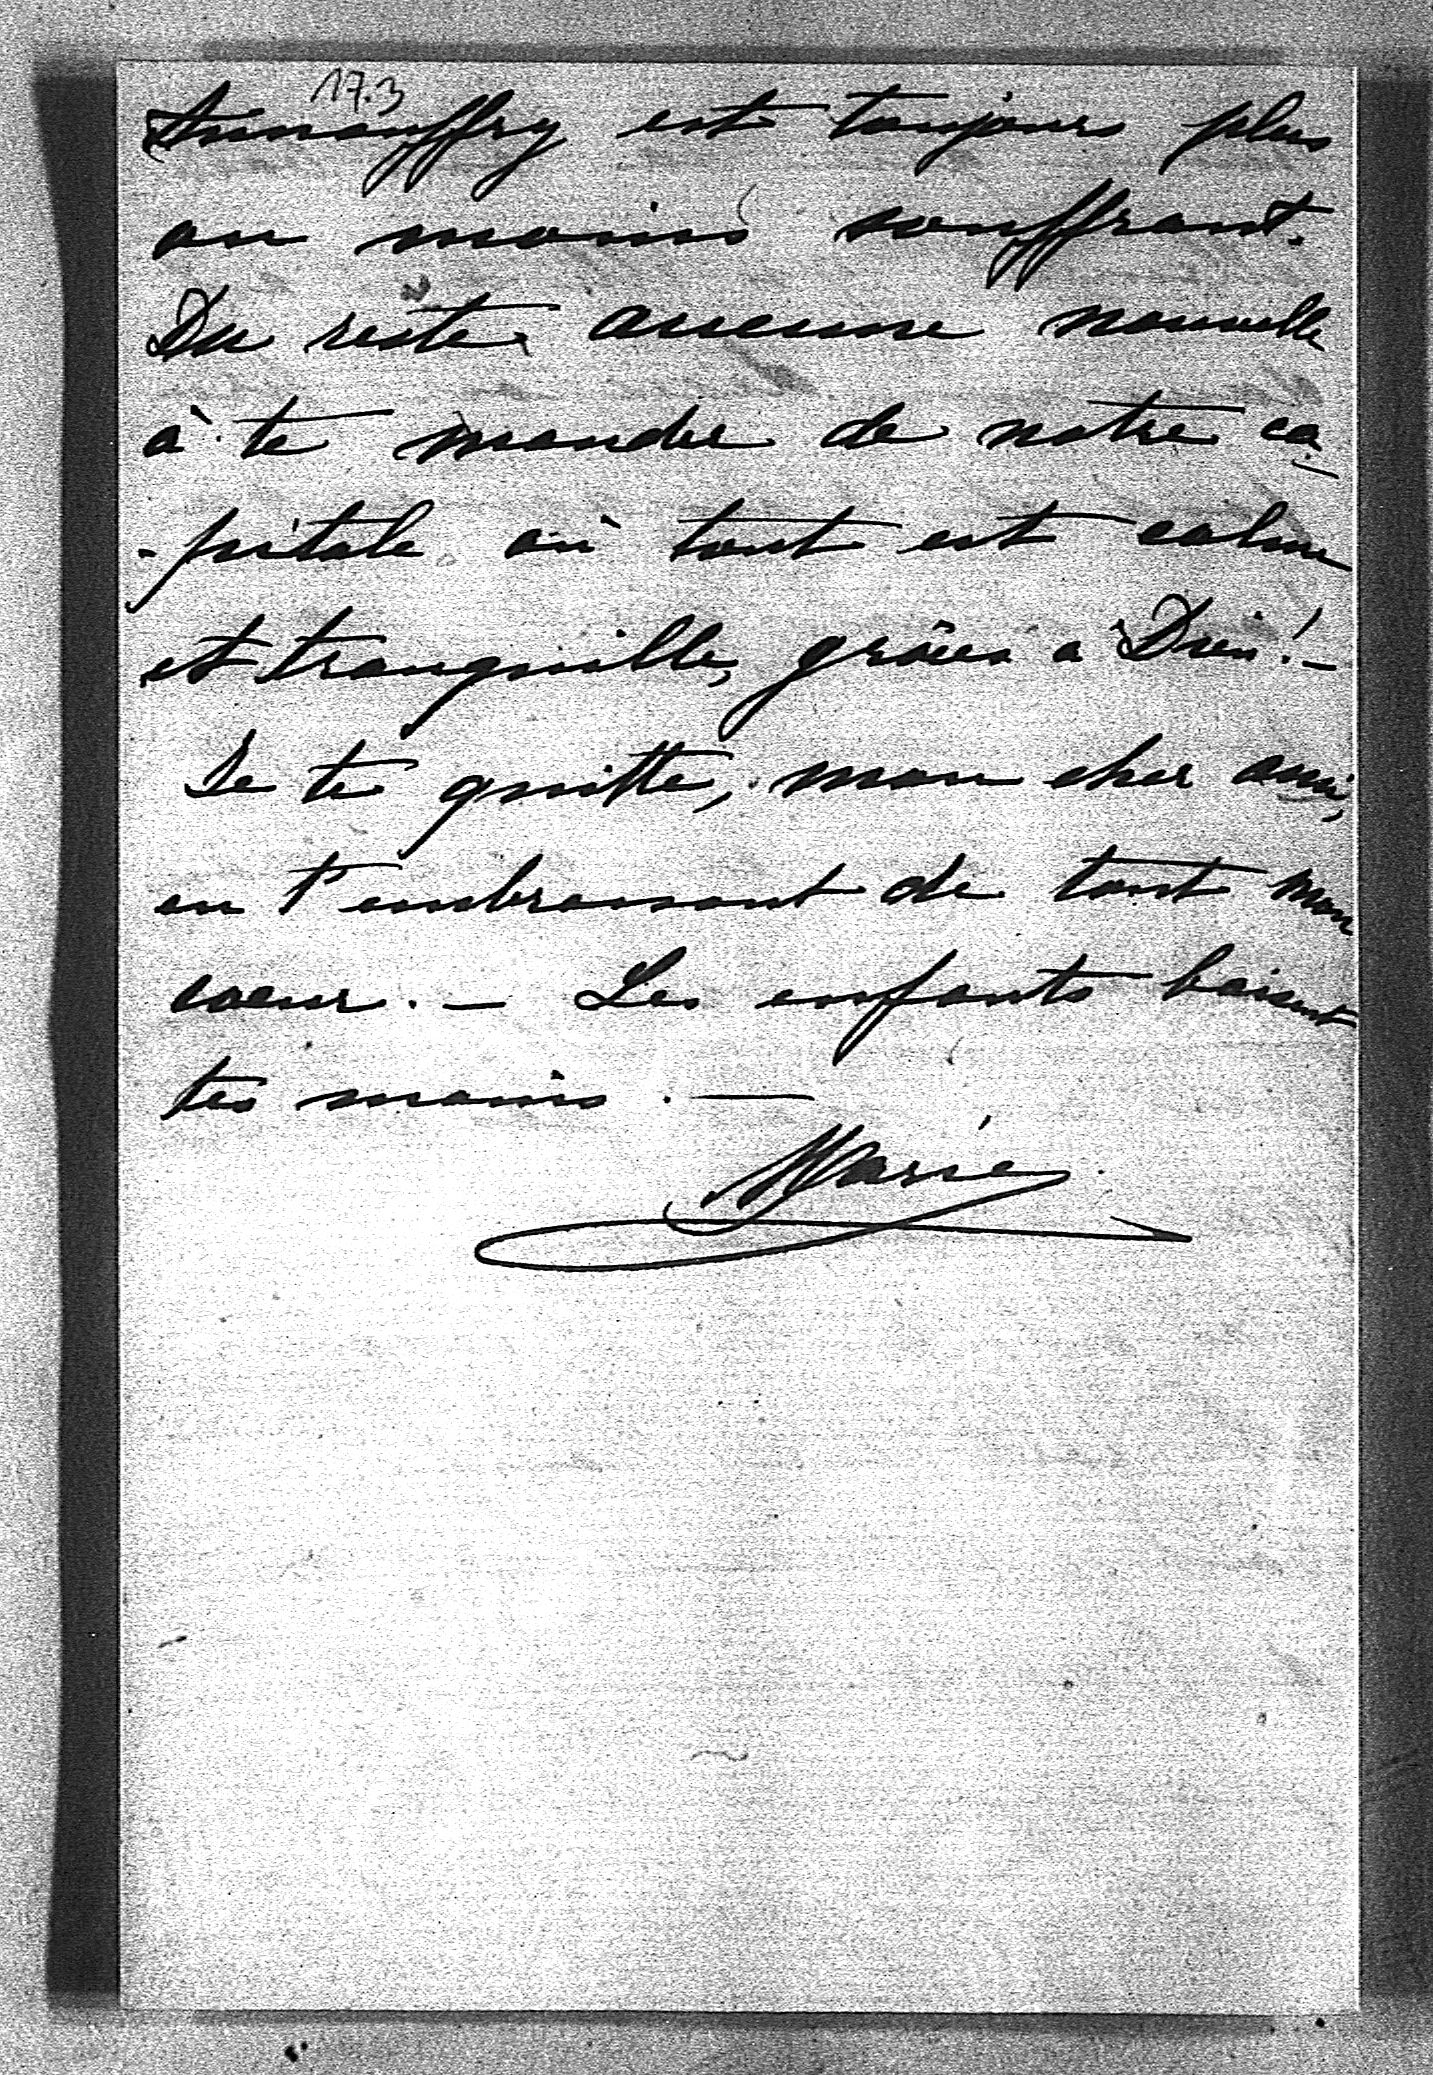 17.3
est toujours plus
ou moins souffrant.
Du reste aucune nouvelle
à te mander de notre ca
-pitale où tout est calme
et tranquille, grâces à Dieu! -
Je te quitte, mon cher ami,
en t'embrassant de tout mon
coeur. - Les enfants baisent
tes mains. -
Marie